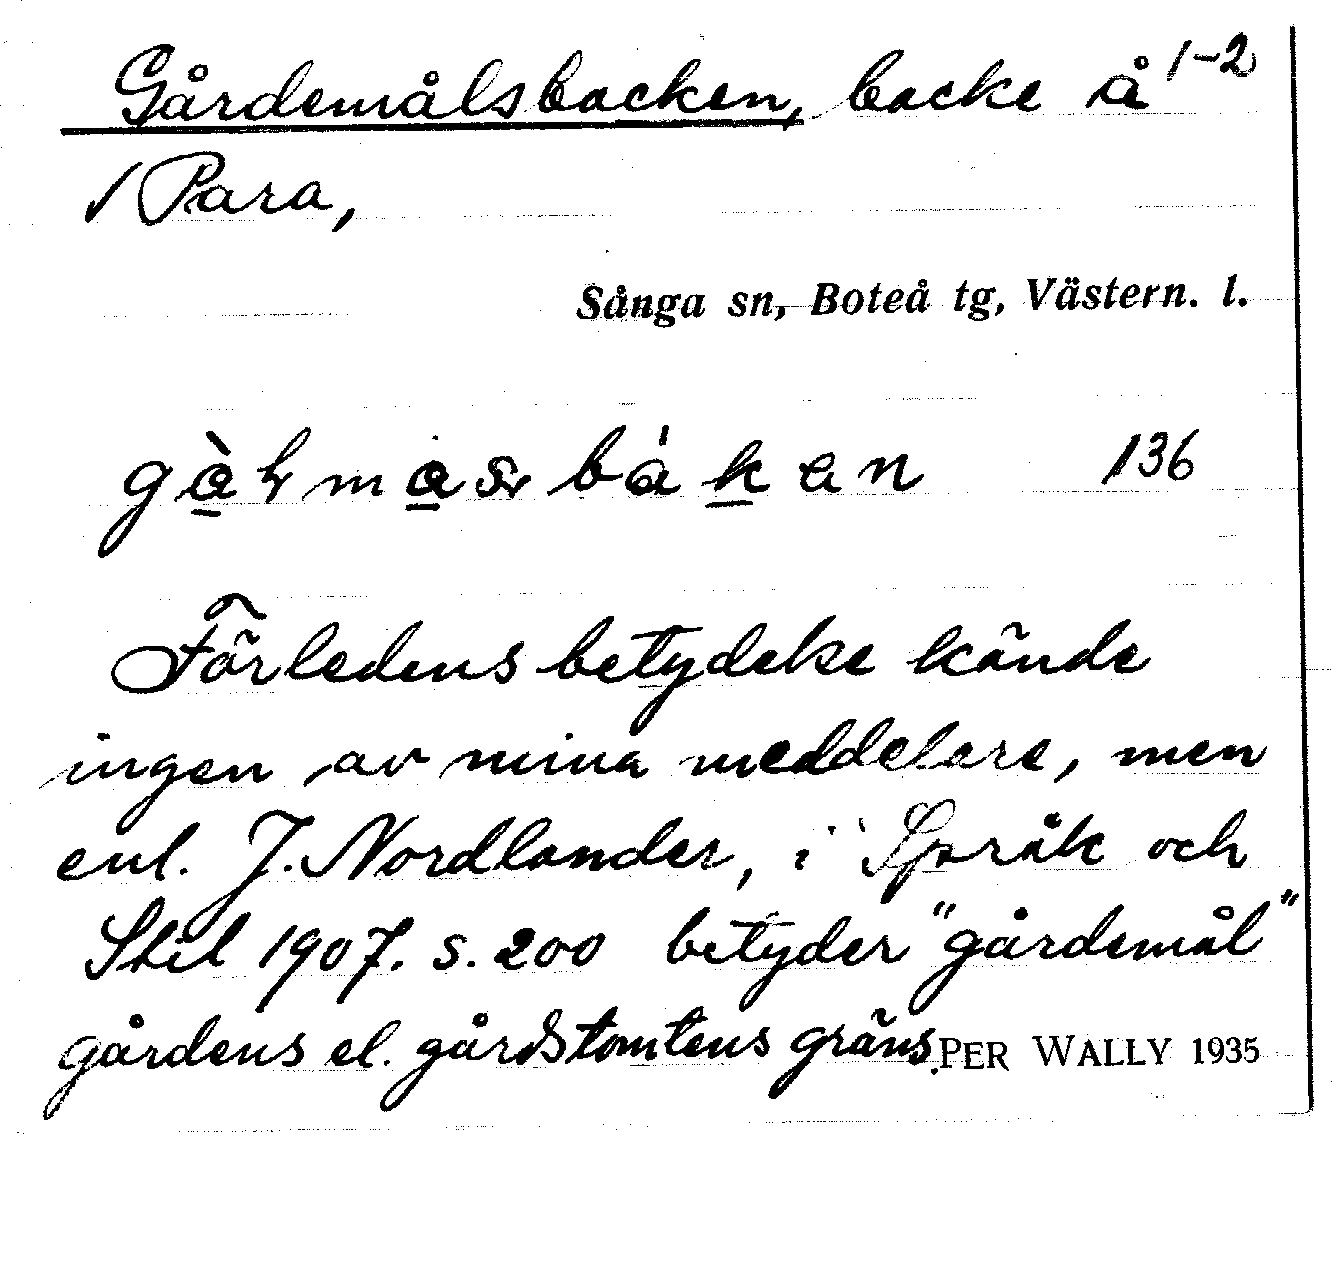 Gårdemålsbacken, backe å 1-2
Para,
Sånga sn, Boteå tg, Västern. l.
136
Förledens betydelse kände
ingen av mina meddelare, men
enl. J. Nordlander, i Språk och
Stil 1907. s. 200 betyder "gårdemål"
gårdens el. gårdstomtens gräns. PER WALLY 1935